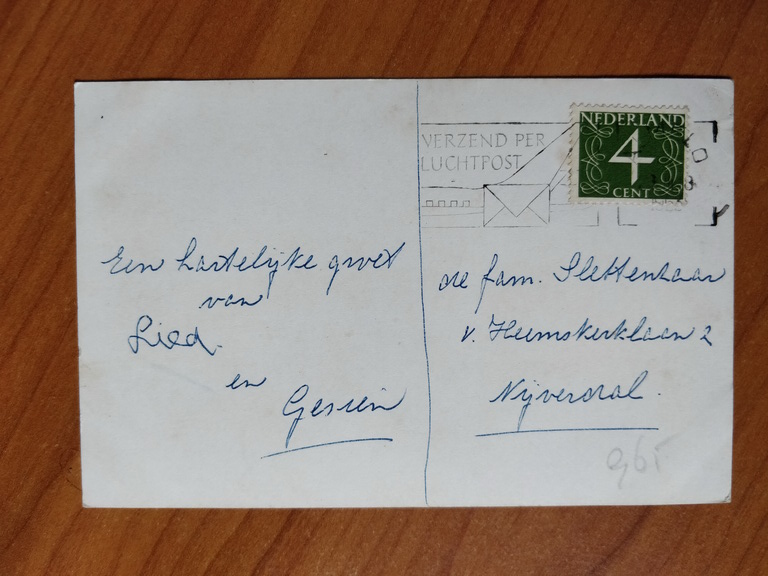 VERZEND PER
LUCHTPOST
NEDERLAND
4
CENT
Een hartelijke groet
van
Lied.
en
Gesien
de fam. Slettenhaar
v. Heemskerklaan 2
Nijverdal.